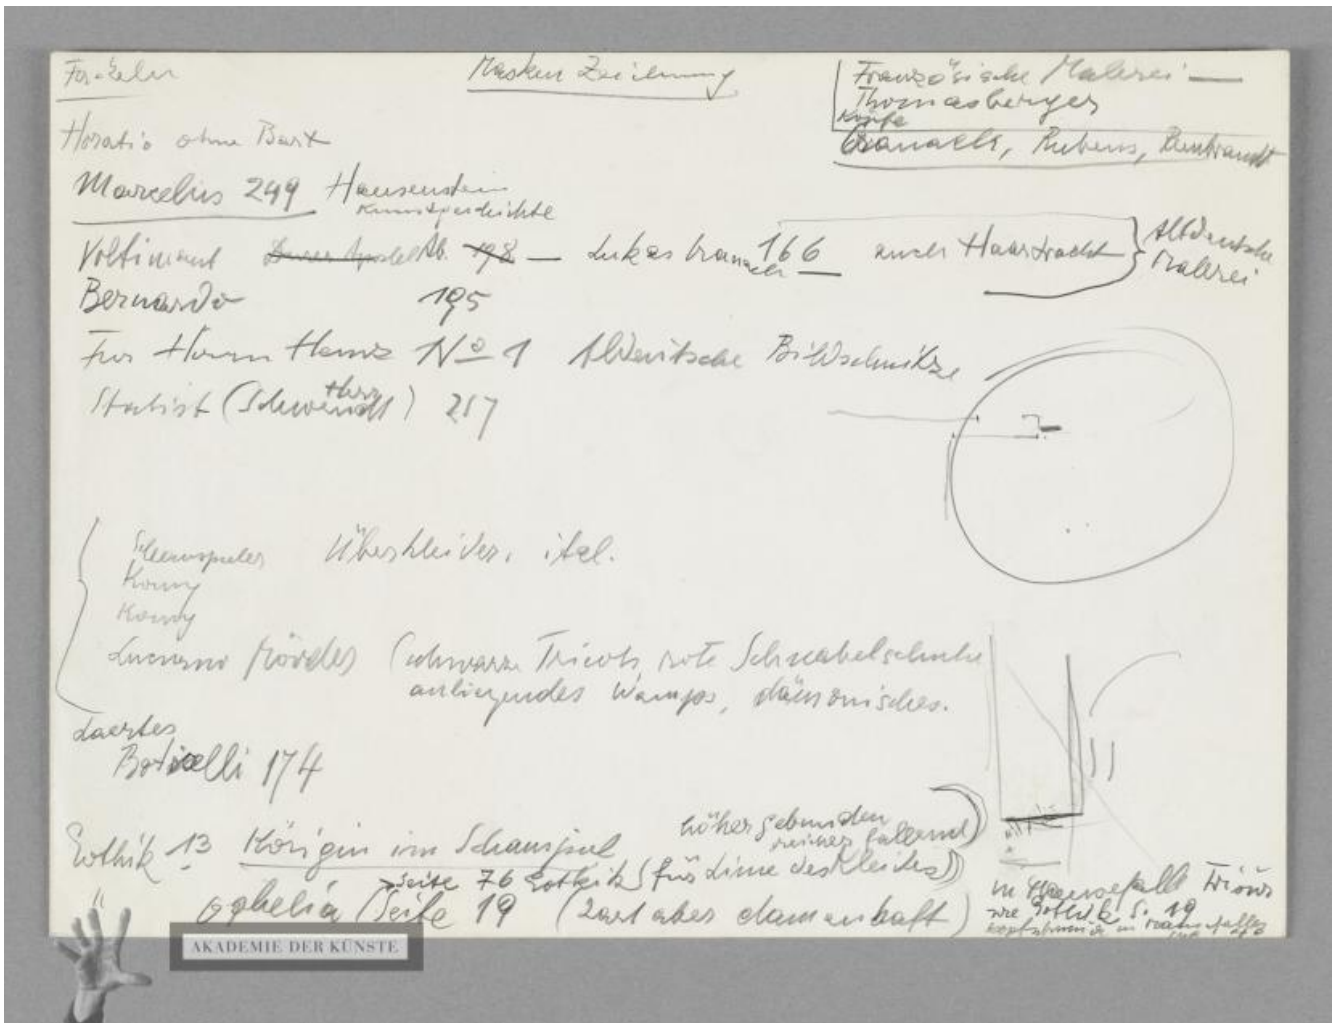 Masken Zeichnung
Französische Malerei —
Thomasberger
Köpfe
Cranach, Rubens, Rembrandt
Horatio ohne Bart
Marcelius 249 Hausenstein
Kunstgeschichte
Voltimant Ab. 198 — Lukas Cranach 166 auch Haartracht
Altdeutsche
Malerei
Bernardo 195
Für Herrn Heinz No 1 Altdeutsche Bildschnitze
Statist (Schwendt Herz) 257
Schauspieler Überkleider. ital.
König
König
Luciano Mörder (schwarze Tricots rote Schnabelschuhe
anliegendes Wamps, dämonisches.
Laertes
Boticelli 174
höher gebunden
reicher fallend)
Gothik 13 Königin im Schauspiel
Seite 76 Gothik (für Linie des Kleides)
" Ophelia Seite 19 (zart aber damenhaft)
in Mausefalle
wie Gothik S. 19
AKADEMIE DER KÜNSTE